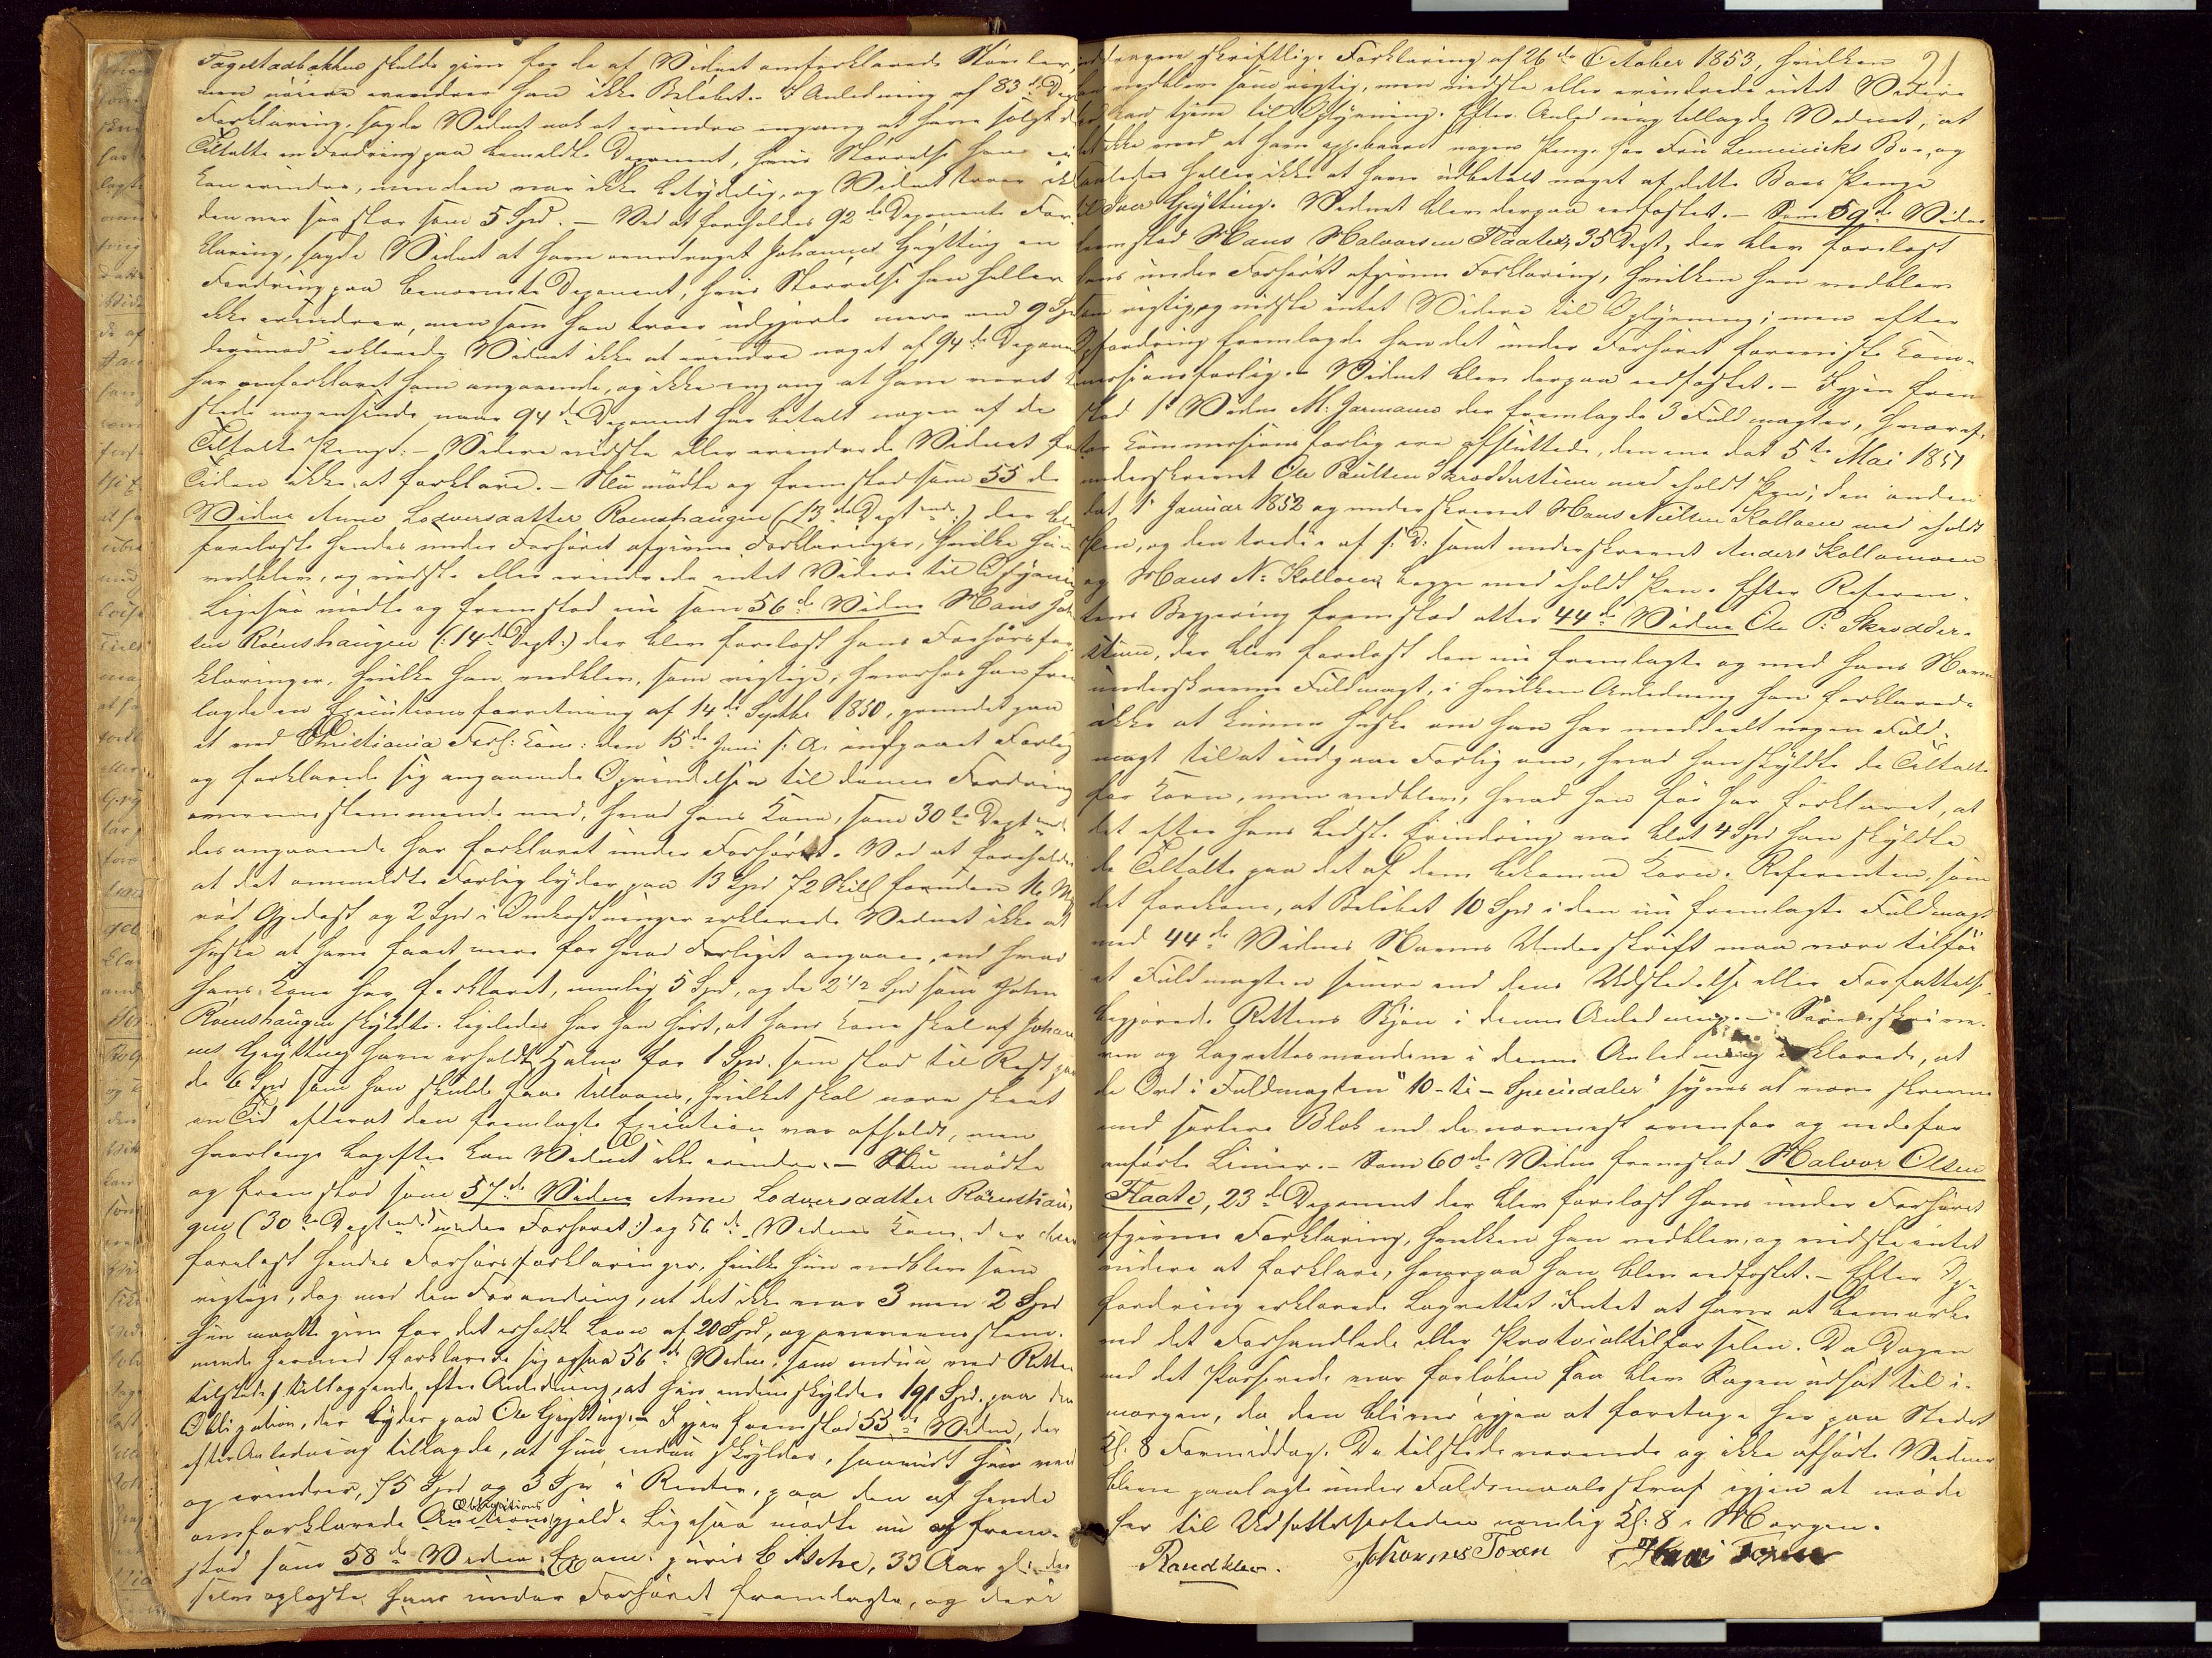 Tagestadbakken skulde give for de af Vidnet omforklarede Störelser,
men nöiere erindrer han ikke Belöbet. I Anledning af 83de Dep
Forklaring, sagde Vidnet nok at erindre engang at have solgt d
Tiltalte en Fordring paa bemeldte Deponent, hvis Störrelse han ei
kan erindre, men den var ikke betydelig, og Vidnet troer ikke
den var saa stor som 5 Spd. – Ved at foreholdes 92de Deponents For-
klaring, sagde Vidnet at have overdraget Johannes Grytting en
Fordring paa benævnte Deponent, hvis Størrelse han heller
ikke erindrer, men som han troer udgjorde mere end 9 Spd
derimod erklærede Vidnet ikke at erindre noget af 94de Deponent
har omforklaret ham angaaende, og ikke engang at have været til
stede nogensinde naar 94de Deponent har betalt nogen af de
Tiltalte Penge. – Videre vidste eller erindrede Vidnet for
Tiden ikke at forklare. – Nu mödte og fremstod som 55de
Vidne Anne Lodversdatter Roenshaugen (13de Dept) der blev
forelæst hendes under Forhöret afgivne Forklaringer, hvilke hun
vedblev, og vidste eller erindrede intet Videre til Oplysning
Ligesaa mödte og fremstod nu som 56de Vidne Hans Joh
sen Röenshaugen (: 14de Dept:) der blev forelæst hans Forhörsfor-
klaringer, hvilke han vedblev, som rigtige, hvorhos han frem
lagde en Executionsforretning af 14de Septbr 1850, grundet paa
et ved Christiania Forl: Com: den 15de Juni s. A. indgaaet Forlig
og forklarede sig angaaende Oprindelsen til denne Fordring
overensstemmende med, hvad hans Kone, som 30te Dept
des angaaende har forklaret under Forhöret. Ved at foreholdes
at det anmeldte Forlig lyder paa 13 Spd 72 Skill foruden
og 2 Spd i Omkostninger erklærede Vidnet ikke at
huske at have faaet mere for hvad Forliget angaaer, end hvad
hans Kone har forklaret, nemlig 5 Spd, og de 2 1/2 Spd som John
Röenshaugen skyldte. Ligeledes har han hört, at hans Kone skal af Johan
nes Grytting have erholdt Halm for 1 Spd. som stod til Rest paa
de 6 Spd som han skulde faae tillaans, hvilket skal være skeet
en Tid efterat den fremlagte Execution var afholdt, men
hvorlænge bagefter kan Vidnet ikke erindre. – Nu mödte
og fremstod som 57de Vidne Anne Lodversdatter Röenshau-
gen (30te Dept under Forhöret:) og 56de Vidnes Kone, der blev
forelæst hendes Forhörsforklaringer, hvilke hun vedblev som
rigtige, dog med den Forandring, at det ikke var 3 men 2 Spd
hun maatte give for det erholdte Laan af 20 Spd, og overensstem-
mende hermed forklarede sig ogsaa 56de Vidne, som endnu ved Retten
tilstede, tillæggende efter Anledning, at hun endnu skylder 19 Spd. paa den
Obligation, der lyder paa Ole Grytting. – Igjen fremstod 55de Vidne, der
efter Anledning tillagde, at hun endnu skylder, saavidt hun ved
og erindrer, 75 Spd og 3 Spd i Renter, paa den af hende
Obligations
omforklarede Auctionsgjeld. Ligesaa mödte nu og frem-
stod som 58de Vidne Exam: juris C Asche, 33 Aar gl: der
selv oplæste hans under Forhöret fremlagte, og deri
21
skriftlige Forklaring af 26de October 1853, hvilken
vedblev som rigtig, men vidste eller erindrede intet Videre
kan tjene til Oplysning. Efter Anledning tillagde Vidnet, at
ikke ved at have oppebaaret nogen Penge for Fru Lemmicks Boe, og
saaledes heller ikke at have udbetalt noget af dette Boes Penge
til Iver Grytting. Vidnet blev derpaa eedfæstet. – Som 59de Vidne
fremstod Hans Halvorsen Flaate, 35 Dept, der blev forelæst
hans under Forhöret afgivne Forklaring, hvilken han vedblev
som rigtig og vidste intet Videre til Oplysning; men efter
Opfordring fremlagde han det under Forhöret foreviste Com-
missionsforlig. – Vidnet blev derpaa eedfæstet. – Igjen frem
stod 1ste Vidne M. Jarmann der fremlagde 3 Fuldmagter, hvoref-
ter Commissionsforlig ere afsluttede, den ene dat 5te Mai 1851
underskrevet Ole Paulsen Skrædderstuen med iholdt Pen; den anden
dat. 1 Januar 1852 og underskrevet Hans Nielsen Kolloen med iholdt
Pen, og den tredie af s. D. samt underskrevet Anders Kollomoen
og Hans N. Kolloen begge med iholdt Pen. Efter Referen-
tens Begjering fremstod atter 44de Vidne Ole P: Skrædder-
stuen, der blev forelæst den nu fremlagte og med hans Navn
underskrevne Fuldmagt, i hvilken Anledning han forklarede
ikke at kunne huske om han har meddelt nogen Fuld-
magt til at indgaae Forlig om, hvad han skyldte de Tiltalte
for Korn, men vedblev, hvad han för har forklaret, at
det efter hans bedste Erindring var blot 4 Spd han skyldte
de Tiltalte paa det af dem bekomne Korn. Referenten, som
det forekom, at Belöbet 10 Spd i den nu fremlagte Fuldmagt
med 44de Vidnes Navns Underskrift maa være tilför
et Fuldmagten senere end dens Udstedelse eller Forfattelse,
begjærede Rettens Skjön i denne Anledning. – Sorenskrive-
ren og Lagrettesmændene i denne Anledning erklærede, at
de Ord i Fuldmagten "10 - ti - Speciedaler" synes at være skrevne
med sortere Blæk end de nærmest ovenfor og nedefor
anförte Linier. – Som 60de Vidne fremstod Halvor Olsen
Flaate, 23de Deponent der blev forelæst hans under Forhöret
afgivne Forklaring, hvilken han vedblev, og vidste intet
videre at forklare, hvorpaa han blev eedfæstet. – Efter Op-
fordring erklærede Lagrettet Intet at have at bemærke
ved det Forhandlede eller Protocoltilførselen. Da Dagen
med det Passerede var forløben saa blev Sagen udsat til i-
morgen, da den bliver igjen at foretage her paa Stedet
Kl: 8 Formiddag. De tilstedeværende og ikke afhörte Vidner
bleve paalagte under Faldsmaalsstraf igjen at møde
her til Udsættelsestiden nemlig Kl: 8 i Morgen.
Randklev. Johannes Toxen